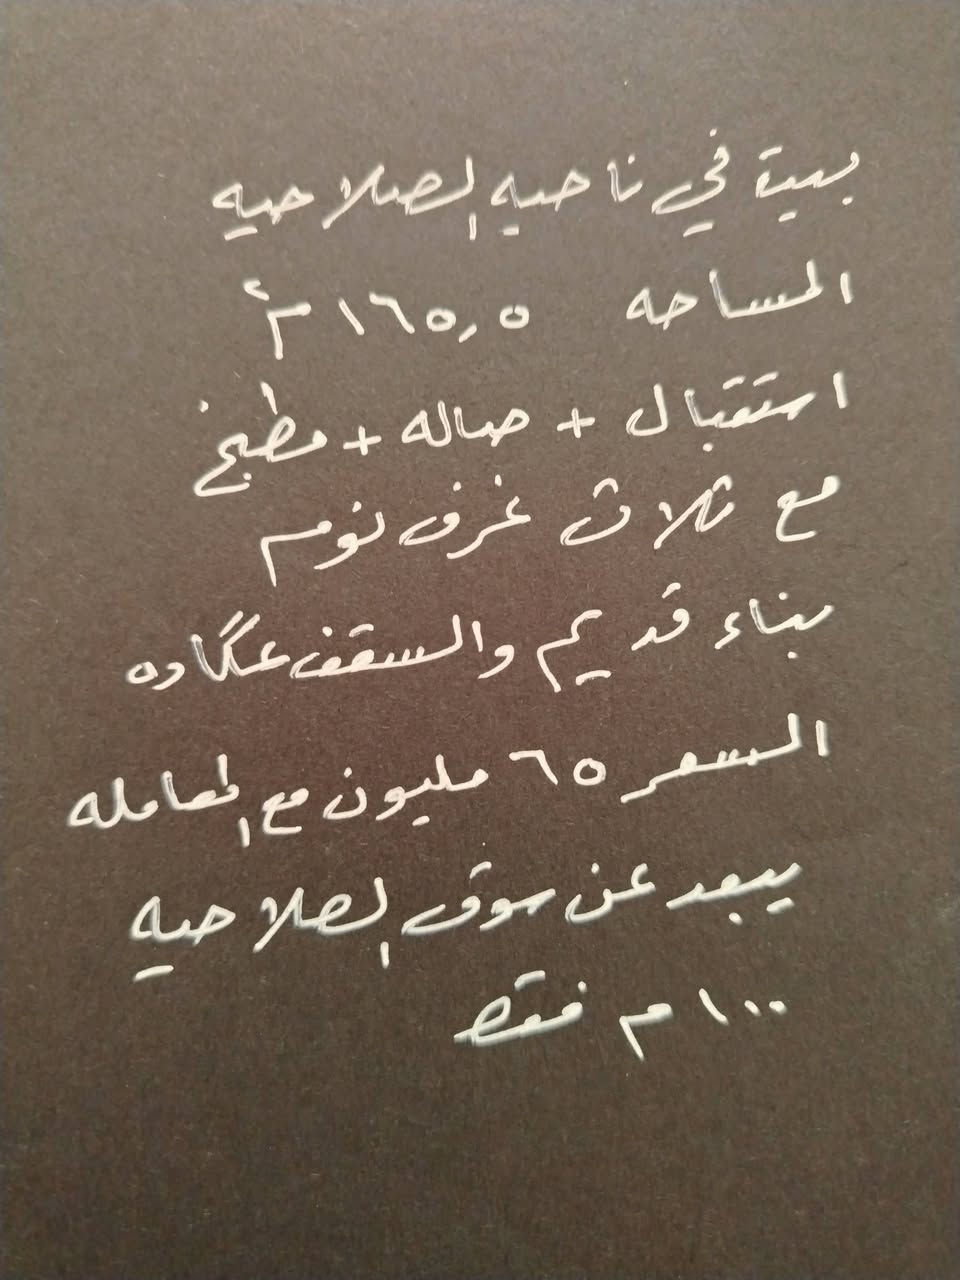 بيت في ناحيه الصلاحيه
المساحه ١٦٥,٥ م٢
استقبال + صاله + مطبخ
مع ثلاث غرف نوم
بناء قديم والسقف عگاده
السعر ٦٥ مليون مع المعامله
يبعد عن سوق الصلاحيه
١٠٠ م فقط